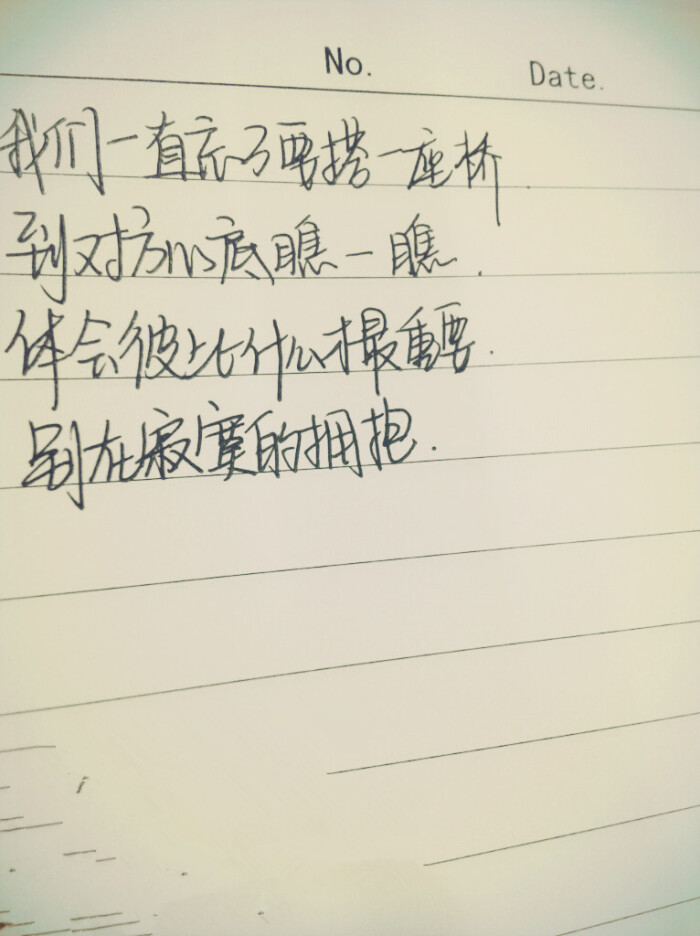 No. Date.
我们一直忘了要搭一座桥.
到对方心底瞧一瞧.
体会彼此什么才最重要.
别在寂寞的拥抱.